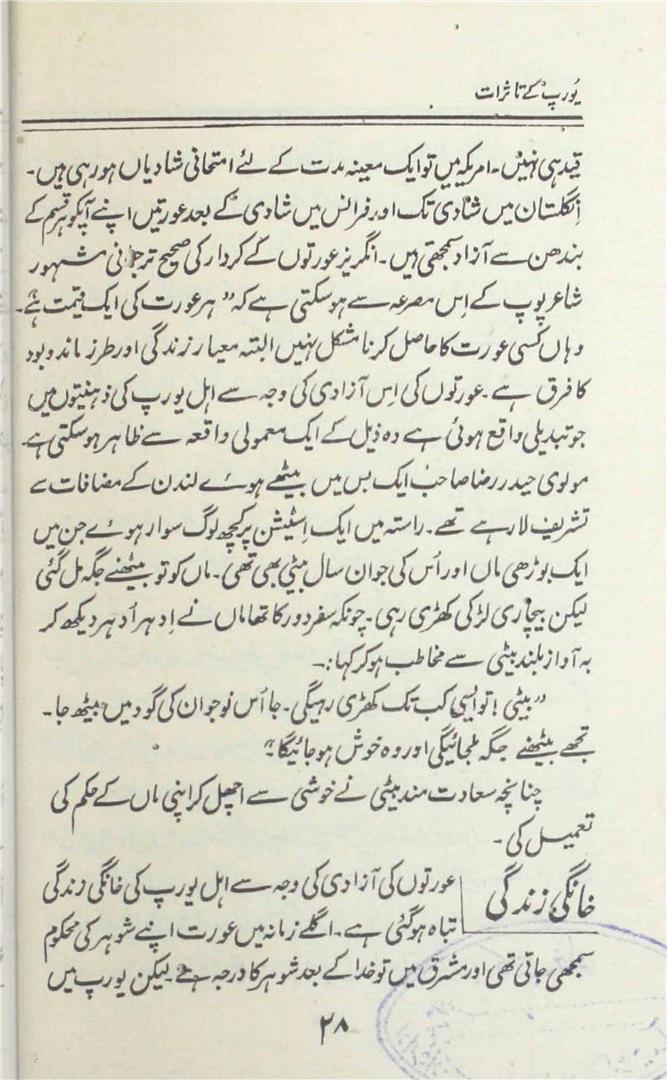 یورپ کے تاثرات
قید ہی نہیں۔ امریکہ میں تو ایک معینہ مدت کے لئے امتحانی شادیاں ہو رہی ہیں۔
انگلستان میں شادی تک اور فرانس میں شادی کے بعد عورتیں اپنے آپکو ہر قسم کے
بندھن سے آزاد سمجھتی ہیں۔ انگریز عورتوں کے کردار کی صحیح ترجمانی مشہور
شاعر پوپ کے اِس مصرعہ سے ہو سکتی ہے کہ "ہر عورت کی ایک قیمت ہے۔
وہاں کسی عورت کا حاصل کرنا مشکل نہیں البتہ معیار زندگی اور طرز ماند و بود
کا فرق ہے۔ عورتوں کی اِس آزادی کی وجہ سے اہل یورپ کی ذہنیتوں میں
جو تبدیلی واقع ہوئی ہے وہ ذیل کے ایک معمولی واقعہ سے ظاہر ہو سکتی ہے۔
مولوی حیدر رضا صاحب ایک بس میں بیٹھے ہوئے لندن کے مضافات سے
تشریف لا رہے تھے۔ راستہ میں ایک اِسٹیشن پر کچھ لوگ سوار ہوئے جن میں
ایک بوڑھی ماں اور اُس کی جوان سال بیٹی بھی تھی۔ ماں کو تو بیٹھنے جگہ مل گئی
لیکن بیچاری لڑکی کھڑی رہی۔ چونکہ سفر دور کا تھا ماں نے اِدہر اُدہر دیکھ کر
بہ آواز بلند بیٹی سے مخاطب ہو کر کہا:۔
"بیٹی! تو ایسی کب تک کھڑی رہیگی۔ جا اُس نوجوان کی گود میں بیٹھ جا۔
تجھے بیٹھنے جگہ ملجائیگی اور وہ خوش ہو جائیگا"
چنانچہ سعادت مند بیٹی نے خوشی سے اچھل کر اپنی ماں کے حکم کی
تعمیل کی۔
خانگی زندگی
عورتوں کی آزادی کی وجہ سے اہل یورپ کی خانگی زندگی
تباہ ہو گئی ہے۔ اگلے زمانہ میں عورت اپنے شوہر کی محکوم
سمجھی جاتی تھی اور مشرق میں تو خدا کے بعد شوہر کا درجہ ہے لیکن یورپ میں
۲۸